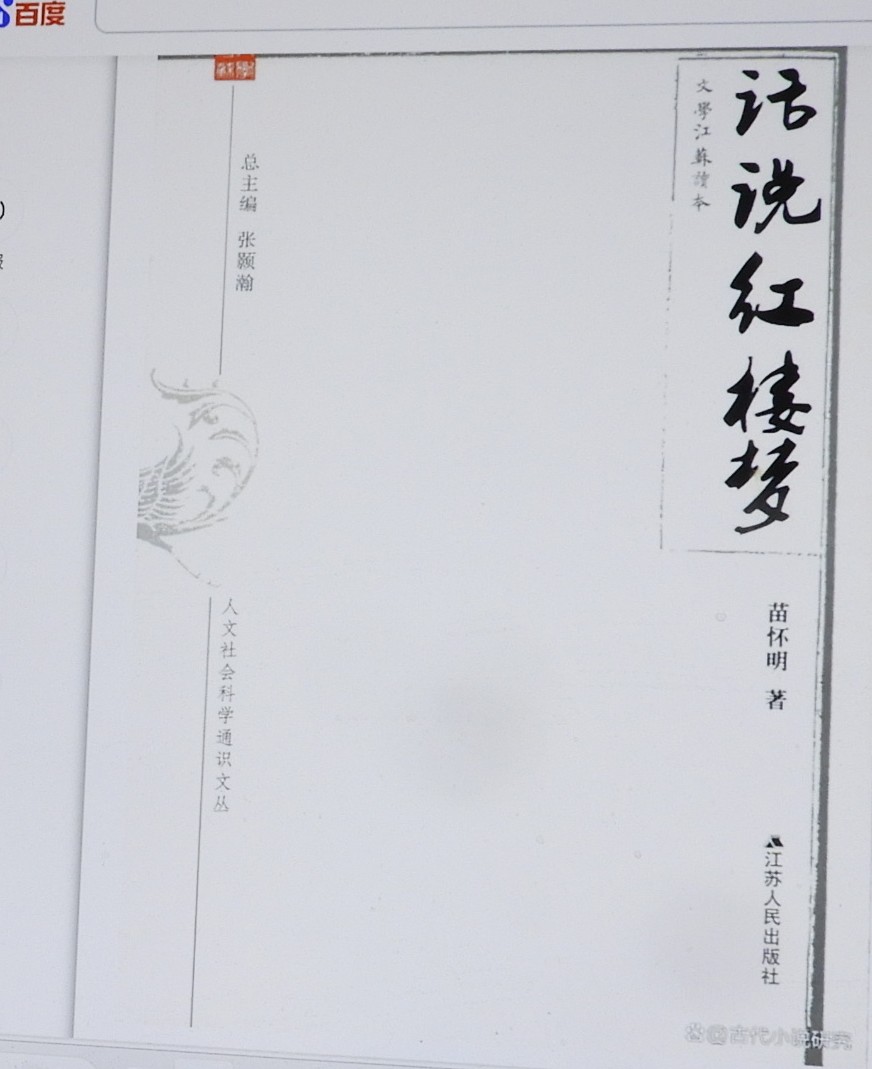 百度
话说红楼梦
文學江蘇讀本
苗怀明 著
江苏人民出版社
总主编 张颢瀚
人文社会科学通识文丛
@古代小说研究